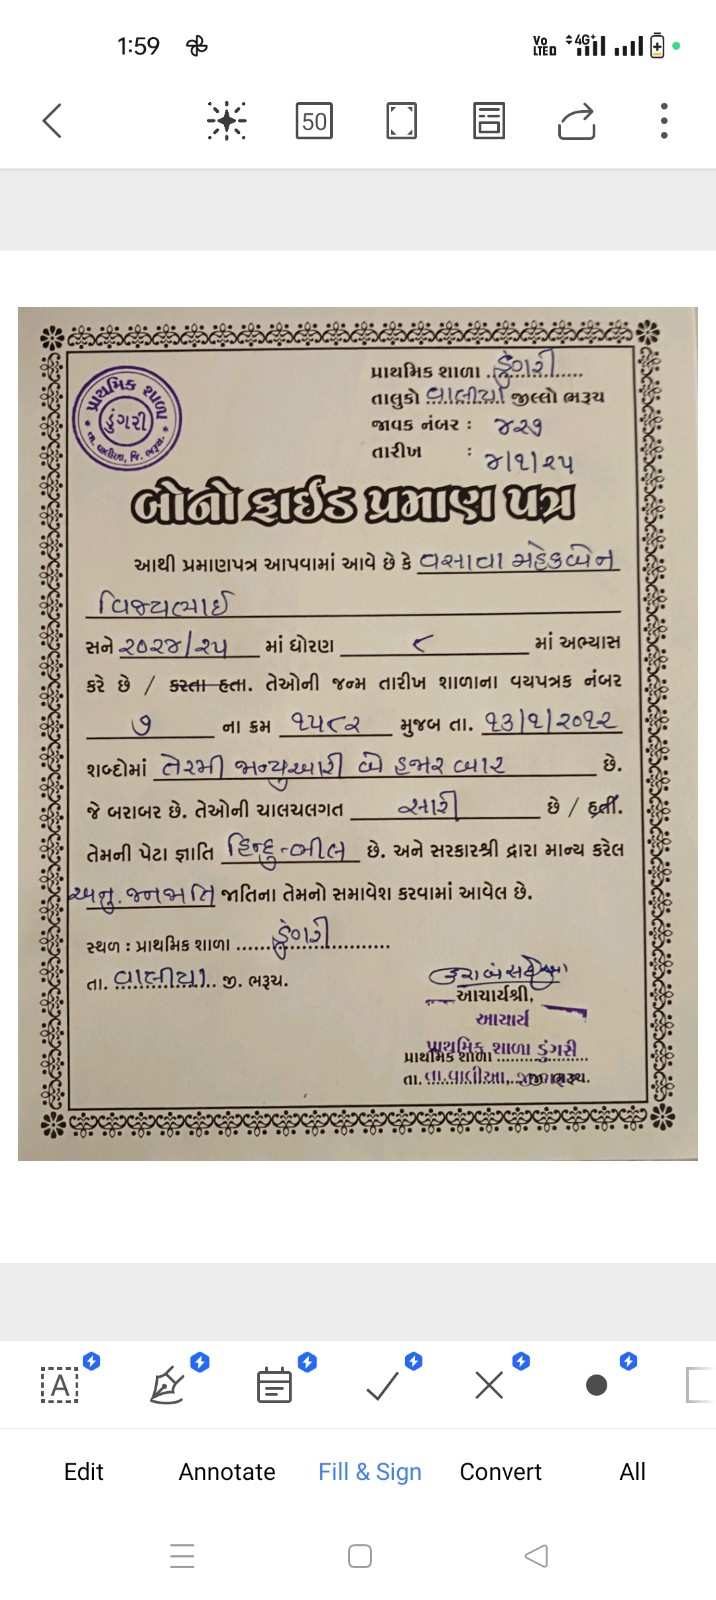 1:59
Vo LTED 4G+
50
પ્રાથમિક શાળા
ડુંગરી
તા. વાલીયા, જિ. ભરૂચ.
પ્રાથમિક શાળા ..ડુંગરી.....
તાલુકો વાલીયા જીલ્લો ભરૂચ
જાવક નંબર : ૪૨૭
તારીખ : ૪/૧/૨૫
બોનોફાઈડ પ્રમાણ પત્ર
આથી પ્રમાણપત્ર આપવામાં આવે છે કે વસાવા મહેકબેન
વિજયભાઈ
સને ૨૦૨૪/૨૫ માં ધોરણ ૮ માં અભ્યાસ
કરે છે / કરતા હતા. તેઓની જન્મ તારીખ શાળાના વયપત્રક નંબર
૭ ના ક્રમ ૧૫૮૨ મુજબ તા. ૧૩/૧/૨૦૧૨
શબ્દોમાં તેરમી જાન્યુઆરી બે હજાર બાર છે.
જે બરાબર છે. તેઓની ચાલચલગત સારી છે / હતી.
તેમની પેટા જ્ઞાતિ હિન્દુ-ભીલ છે. અને સરકારશ્રી દ્વારા માન્ય કરેલ
અનુ. જનજાતિ જાતિના તેમનો સમાવેશ કરવામાં આવેલ છે.
સ્થળ : પ્રાથમિક શાળા ......ડુંગરી...........
તા. વાલીયા.. જી. ભરૂચ.
આચાર્યશ્રી,
આચાર્ય
પ્રાથમિક શાળા ડુંગરી
પ્રાથમિક શાળા ................
તા. વાલીઆ, જી. ભરૂચ.
A
Edit Annotate Fill & Sign Convert All